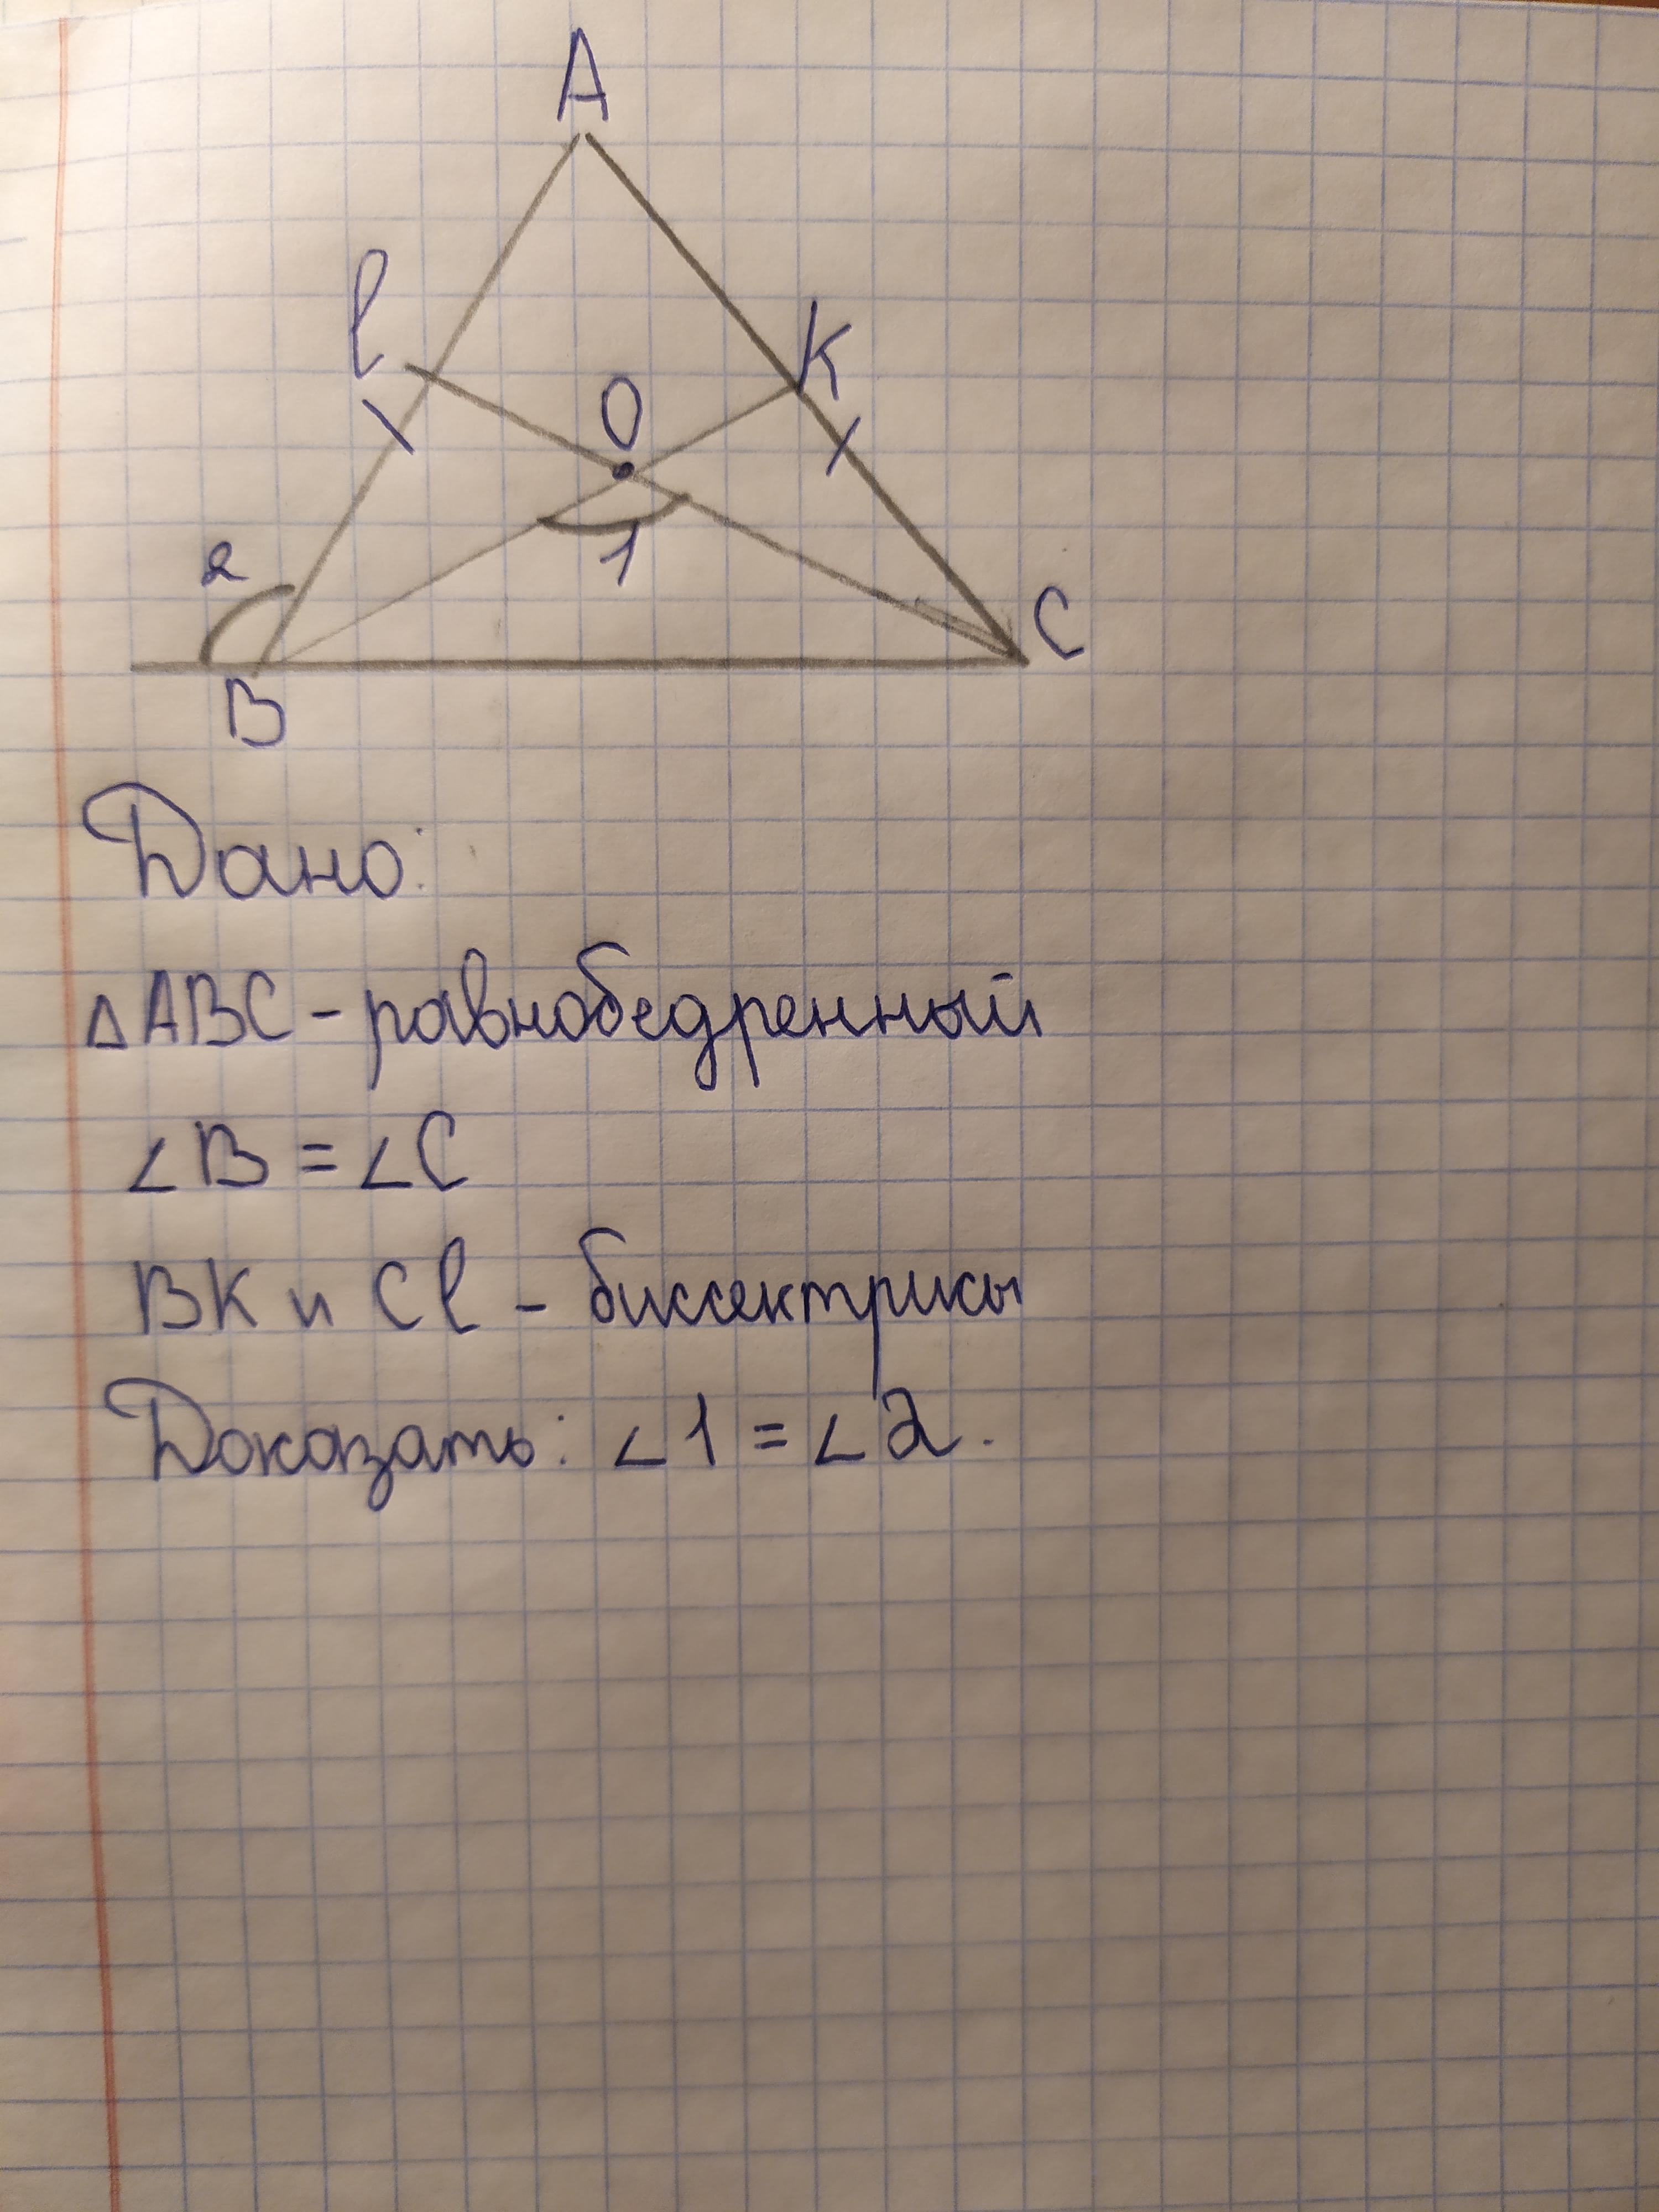 A
l
K
O
1
2
C
B
Дано:
△ABC - равнобедренный
∠B = ∠C
BK и Cl - биссектрисы
Доказать: ∠1 = ∠2.